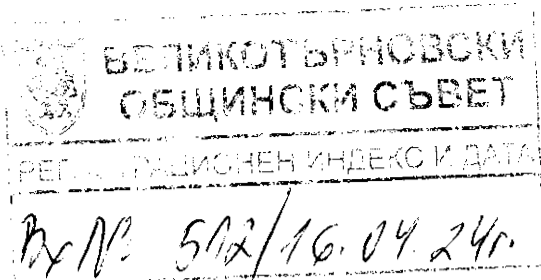 ВЕЛИКОТЪРНОВСКИ
ОБЩИНСКИ СЪВЕТ
РЕГИСТРАЦИОНЕН ИНДЕКС И ДАТА
Вх № 512/16.04.24г.